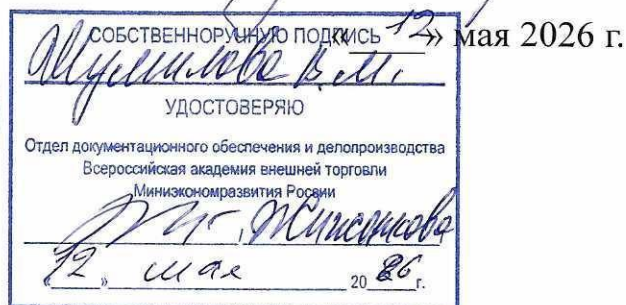 «12» мая 2026 г.
СОБСТВЕННОРУЧНУЮ ПОДПИСЬ
Шумилова В.М.
УДОСТОВЕРЯЮ
Отдел документационного обеспечения и делопроизводства
Всероссийская академия внешней торговли
Минэкономразвития России
«12» мая 2026 г.